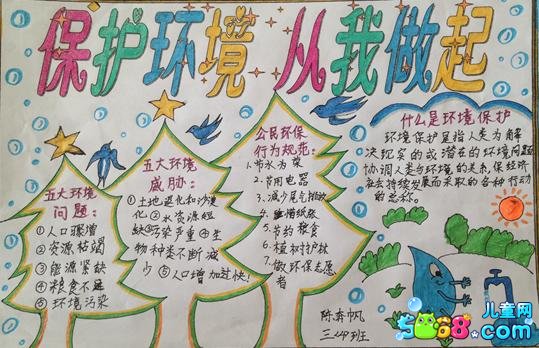 保护环境 从我做起
五大环境
问题：
①人口骤增
②资源枯竭
③能源紧缺
④粮食不足
⑤环境污染
五大环境
威胁：
①土地退化和沙漠
化②水资源短
缺③污染严重④生
物种类不断减
少⑤人口增加过快！
公民环保
行为规范：
1.节水为荣
2.节用电器
3.减少尾气排放
4.珍惜纸张
5.节约粮食
6.植树护林
7.做环保志愿
者
什么是环境保护
环境保护是指人类为解
决现实的或潜在的环境问题
协调人类与环境的关系,保经济
社会持续发展而采取的各种行动
的总称。
陈奔帆
三(4)班
儿童网
5068.com